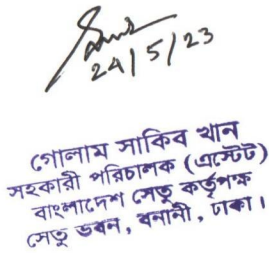 24/5/23
গোলাম সাকিব খান
সহকারী পরিচালক (এস্টেট)
বাংলাদেশ সেতু কর্তৃপক্ষ
সেতু ভবন, বনানী, ঢাকা।